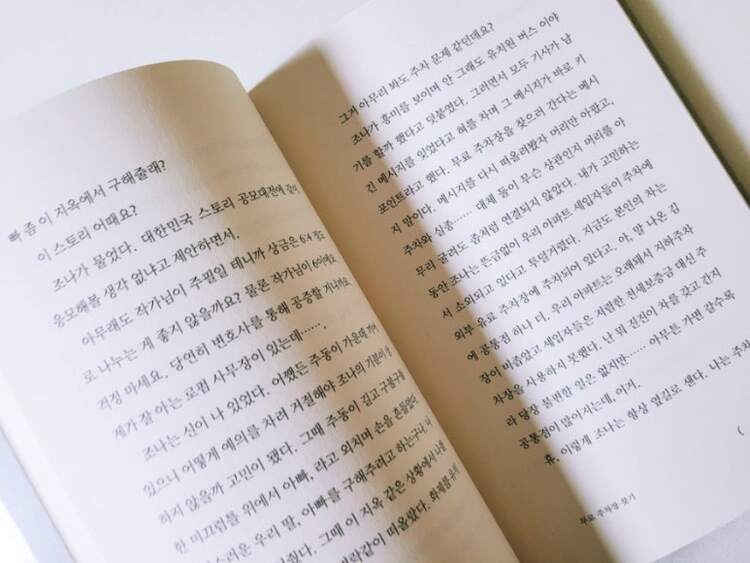 빠 좀 이 지옥에서 구해줄래?
이 스토리 어때요?
조나가 물었다. 대한민국 스토리 공모대전에 같이
응모해볼 생각 없냐고 제안하면서.
아무래도 작가님이 주필일 테니까 상금은 6:4 정도
로 나누는 게 좋지 않을까요? 물론 작가님이 6이에요.
걱정 마세요. 당연히 변호사를 통해 공증할 거니까요.
제가 잘 아는 로펌 사무장이 있는데…….
조나는 신이 나 있었다. 어쨌든 주동이 가운데 껴
있으니 어떻게 예의를 차려 거절해야 조나의 기분이 상
하지 않을까 고민이 됐다. 그때 주동이 길고 구불구불
한 미끄럼틀 위에서 아빠, 라고 외치며 손을 흔들었다.
스러운 우리 딸, 아빠를 구해주려고 하는구나, 나
줬다. 그때 이 지옥 같은 상황에서 나를
벼락같이 떠올랐다. 화제를
그거 아무리 봐도 주차 문제 같던데요?
조나가 흥미를 보이며 안 그래도 유치원 버스 이야
기를 할까 했다고 덧붙였다. 그러면서 모두 기사가 남
긴 메시지를 잊었다고 혀를 차며 그 메시지가 바로 키
포인트라고 했다. 무료 주차장을 찾으러 간다는 메시
지 말이다. 메시지를 다시 떠올려봤자 머리만 아팠고,
주차와 실종…… 대체 둘이 무슨 상관인지 머리를 아
무리 굴려도 좀처럼 연결되지 않았다. 내가 고민하는
동안 조나는 뜬금없이 우리 아파트 세입자들이 주차에
서 소외되고 있다고 투덜거렸다. 지금도 본인의 차는
외부 유료 주차장에 주차되어 있다고, 아, 말 나온 김
에 공통점 하나 더. 우리 아파트는 오래돼서 지하주차
장이 비좁았고 세입자들은 저렴한 전세보증금 대신 주
차장을 사용하지 못했다. 난 뭐 진진이 차를 갖고 간지
라 당장 불편할 일은 없지만…… 아무튼 가면 갈수록
공통점이 많아지는데, 이거.
휴, 이렇게 조나는 항상 옆길로 샌다. 나는 주차
무료 주차장 찾기